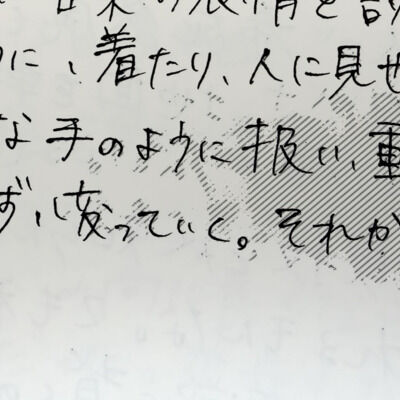 の表情を
に、着たり、人に見せ
な手のように扱い、重
ず、変っていく。それが